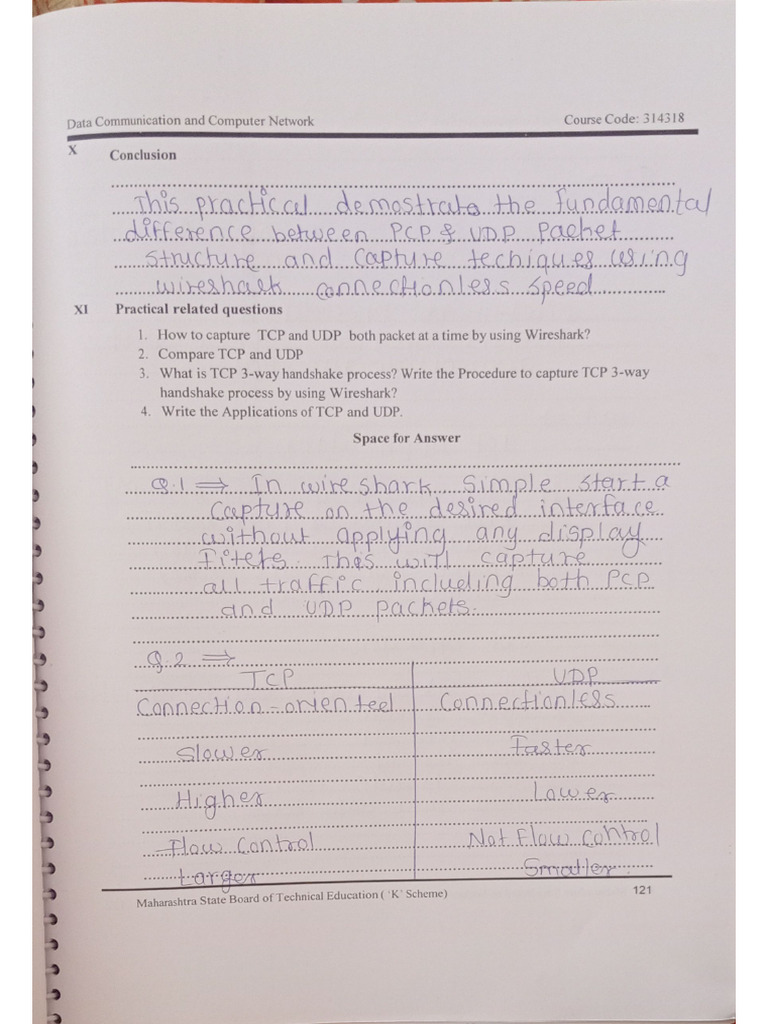 Data Communication and Computer Network Course Code: 314318
X Conclusion
This practical demostrate the fundamental
difference between PCP & UDP Pachet
structure and Capture techiques using
wireshark connectionless speed
XI Practical related questions
1. How to capture TCP and UDP both packet at a time by using Wireshark?
2. Compare TCP and UDP
3. What is TCP 3-way handshake process? Write the Procedure to capture TCP 3-way
handshake process by using Wireshark?
4. Write the Applications of TCP and UDP.
Space for Answer
Q.1 ⇒ In wireshark Simple start a
Capture on the desired interface
without applying any display
Fiters. This will capture
all traffic including both PCP
and UDP packets.
Q.2 ⇒
TCP UDP
Connection-orienteel Connectionless
Slower Faster
Higher Lower
Flow Control Not Flow control
Larger Smaller
Maharashtra State Board of Technical Education ( 'K' Scheme) 121